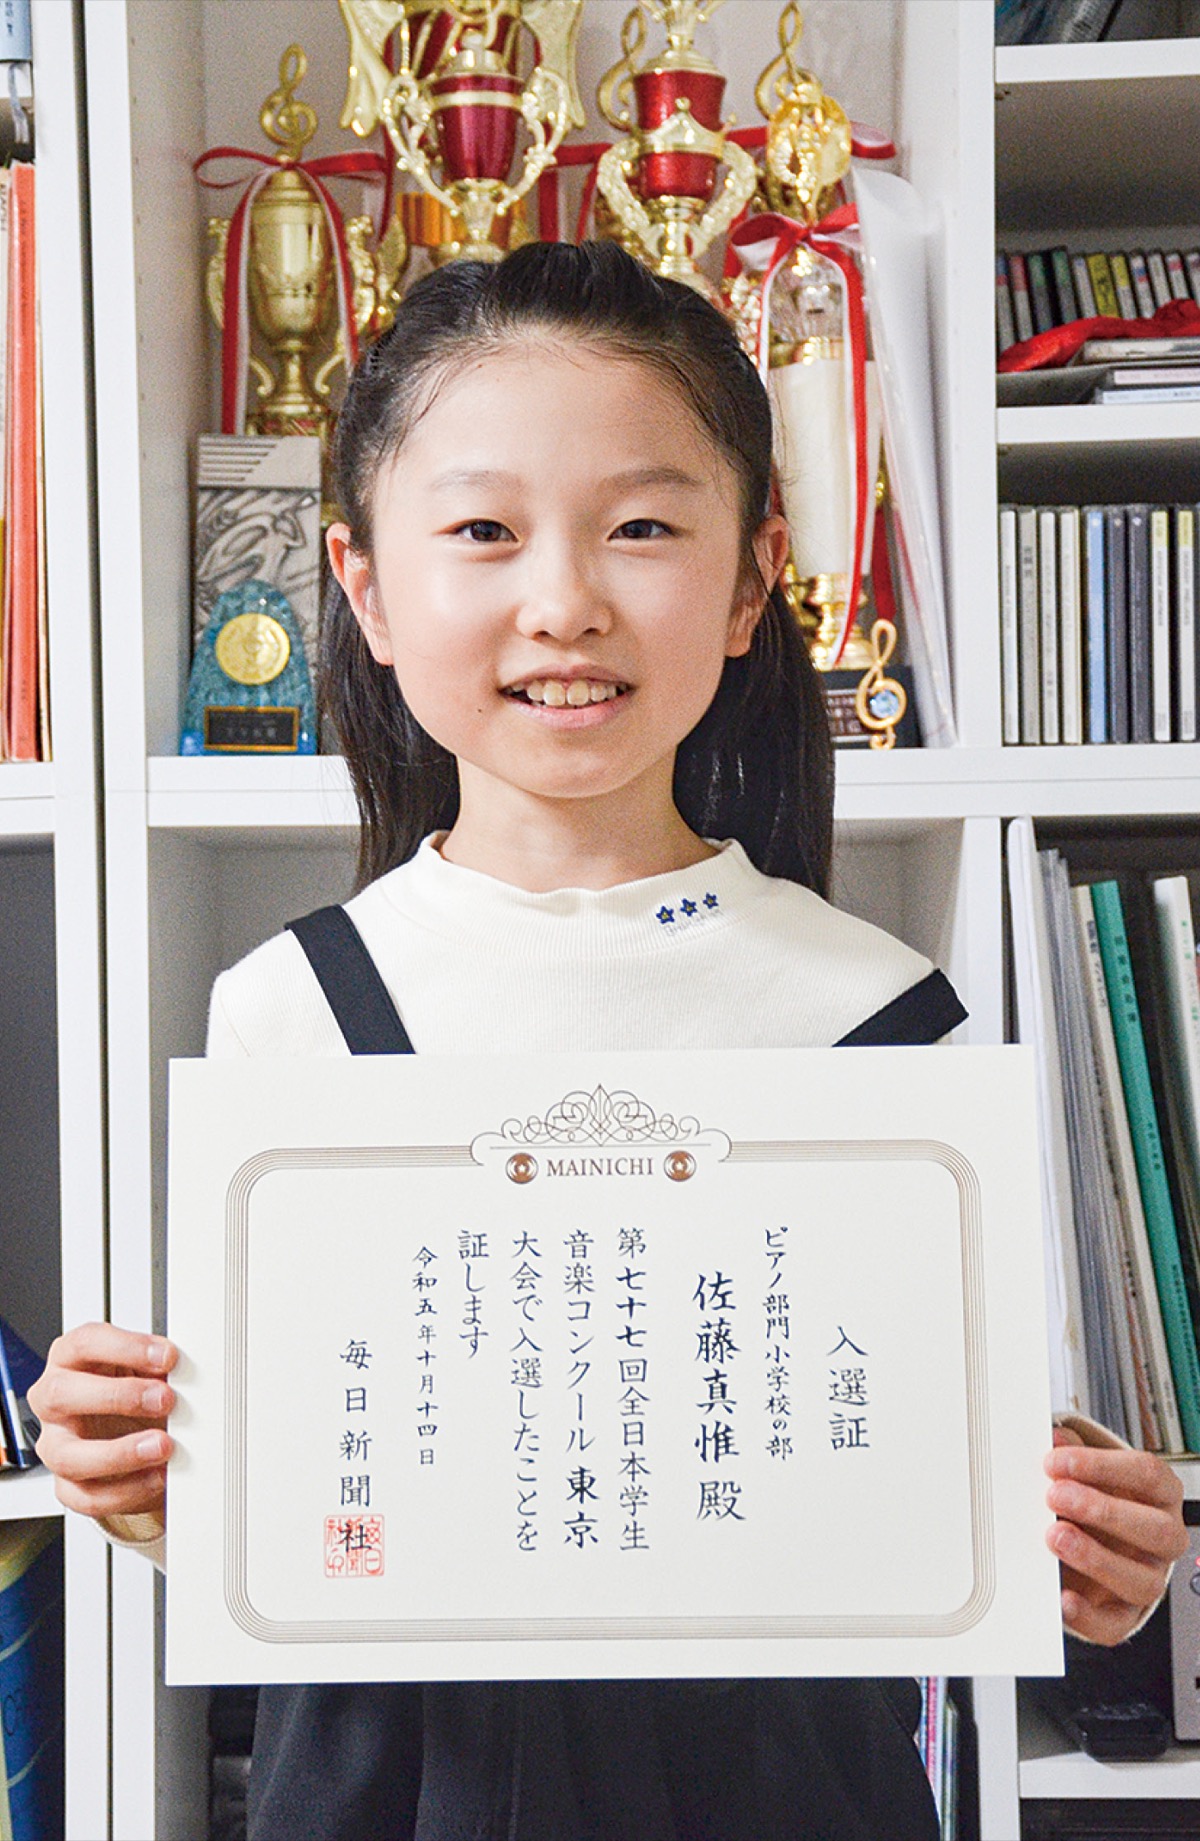 MAINICHI
入選証
ピアノ部門小学校の部
佐藤真惟殿
第七十七回全日本学生
音楽コンクール東京
大会で入選したことを
証します
令和五年十月十四日
毎日新聞社